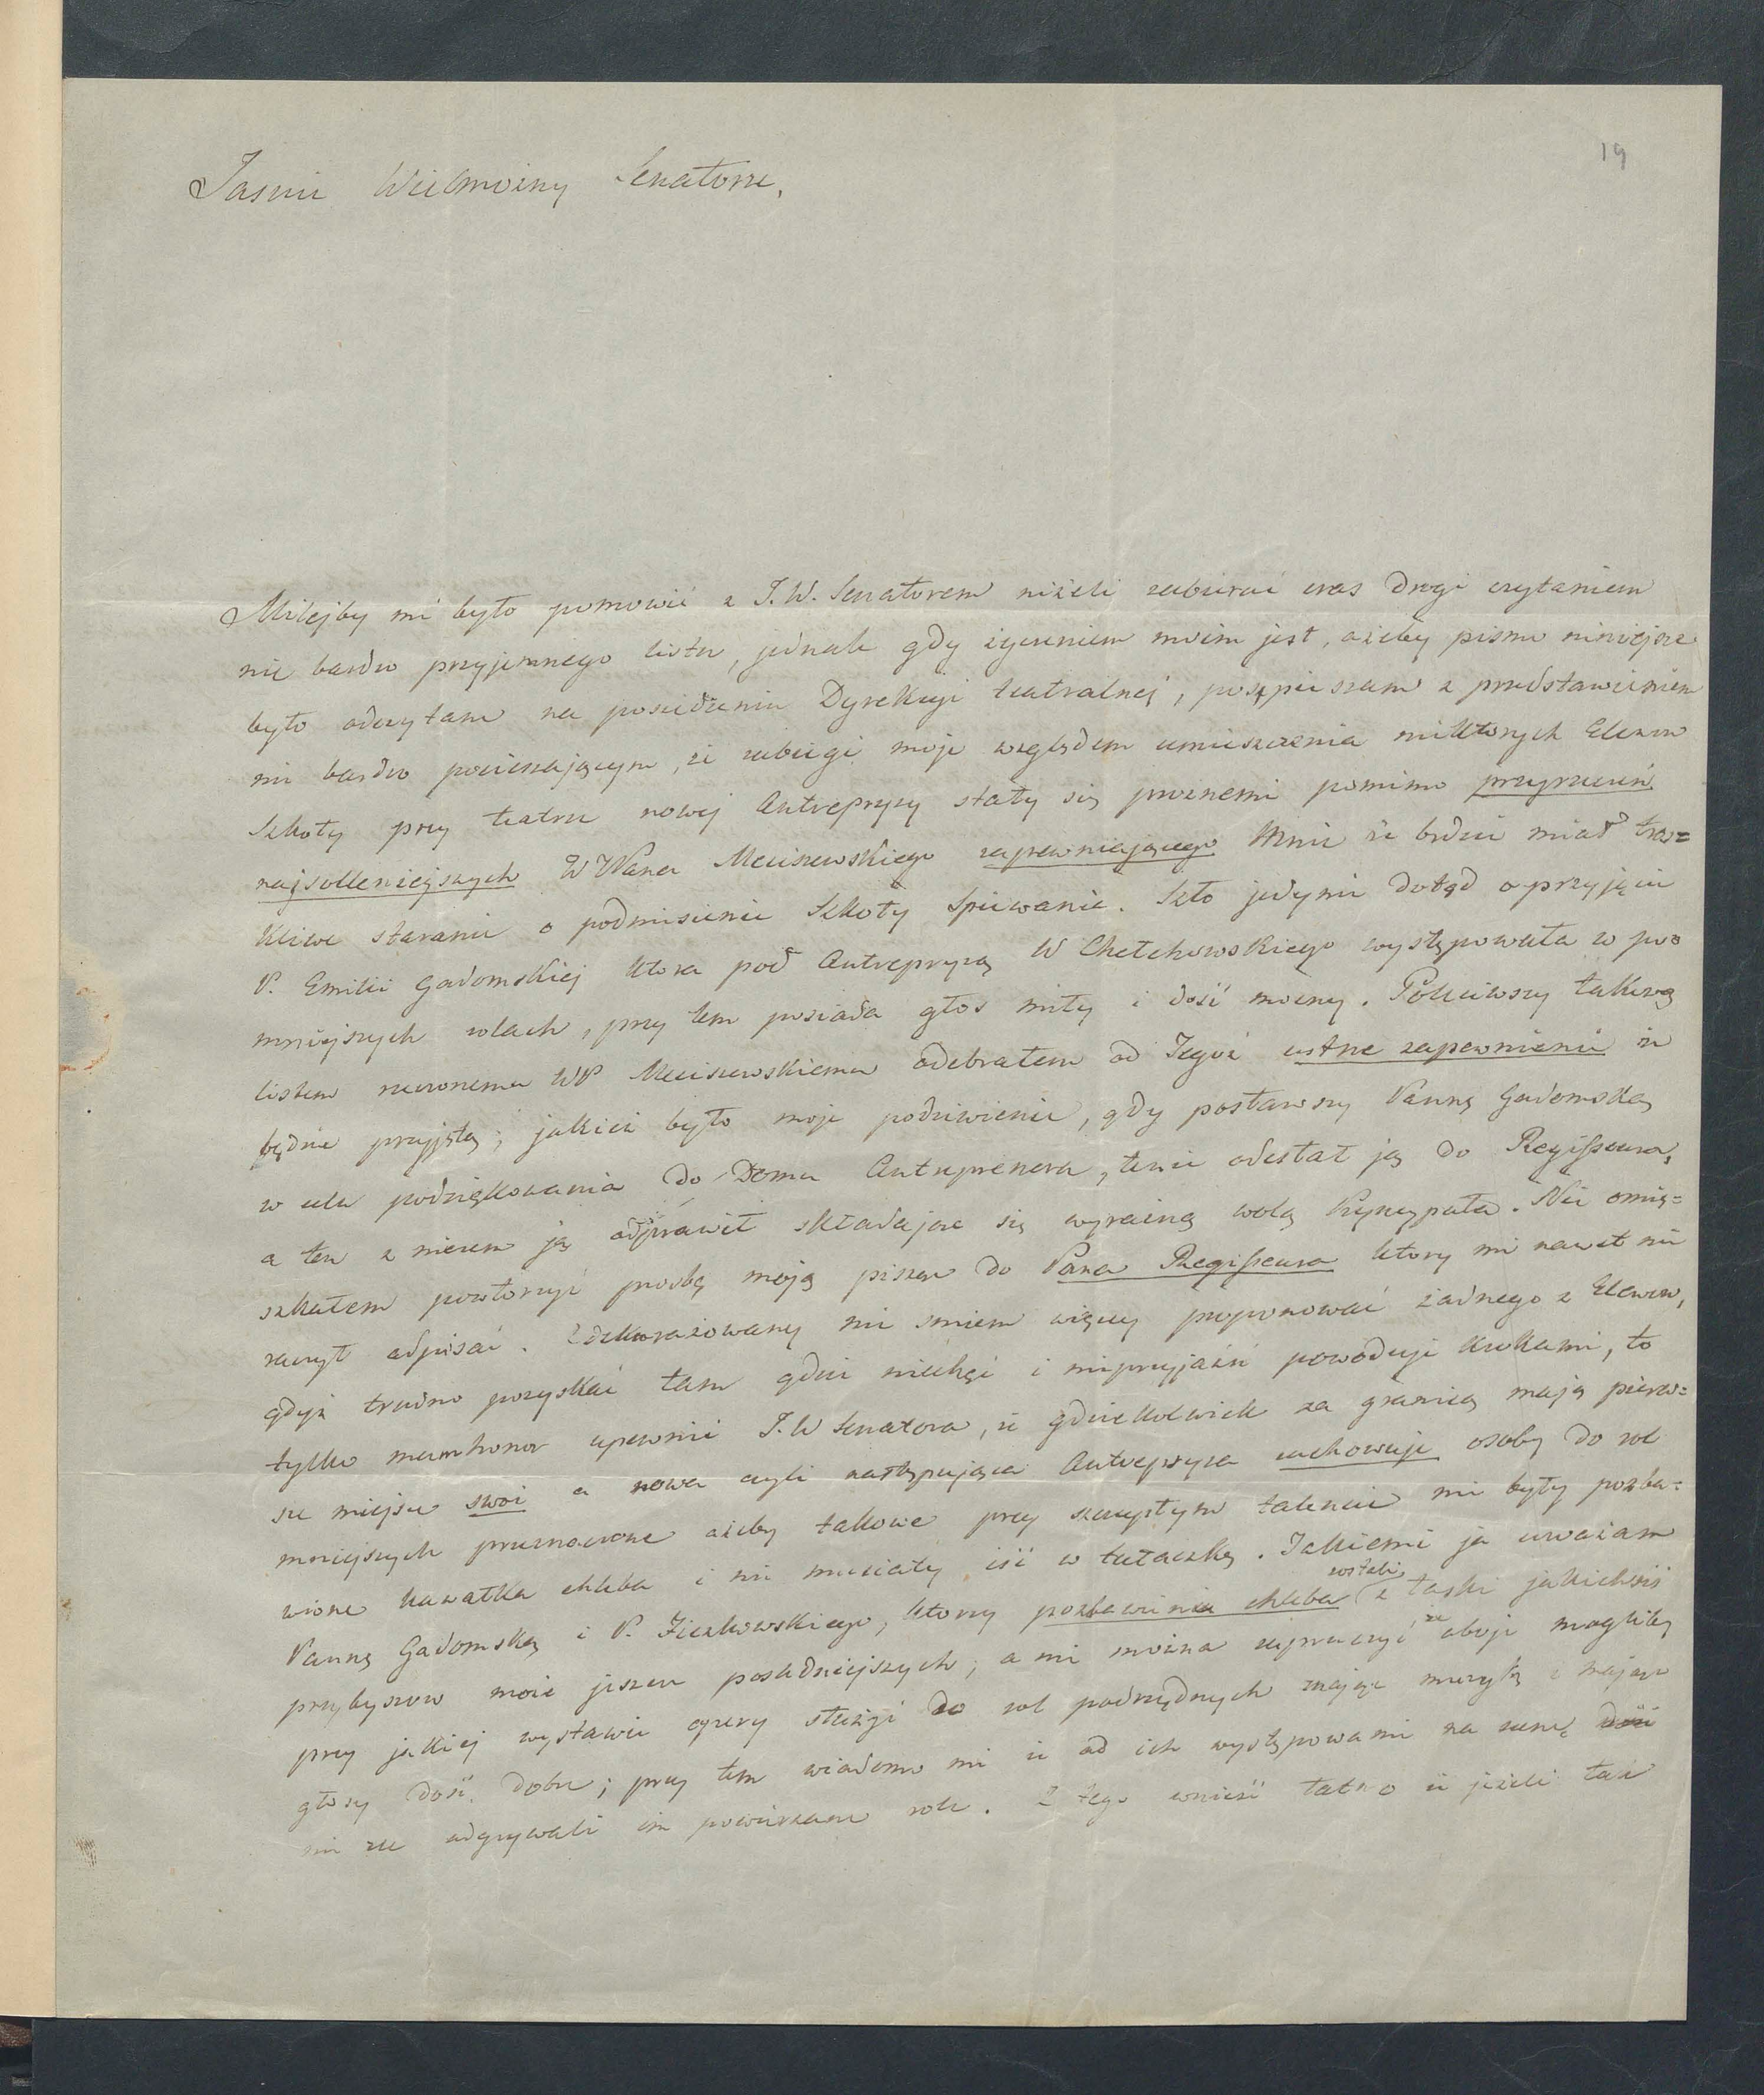 19
Jasnie Wielmożny Senatorze,
Milejby mi było pomowić z J.W. Senatorem niżeli zabierać czas drogi czytaniem
nie bardzo przyjemnego listu, jednak gdy życzeniem moim jest, ażeby pismo niniejsze
było odczytane na posiedzeniu Dyrekcyi teatralnej, pospieszam z przedstawieniem
nie bardzo pocieszającym, że zabiegi moje względem umieszczenia niektorych Elewow
Szkoły przy teatrze nowej Antrepryzy stały się proznemi pomimo przyrzeczeń
najsolleniejszych WPana Meciszewskiego zapewniającego mnie że będzie miał tros=
kliwe staranie o podniesienie Szkoły Spiewania. Szło jedynie dotąd o przyjęcie
P. Emilii Gadomskiej ktora pod Antrepryzą W Chełchowskiego występowała w po=
mniejszych rolach, przy tem posiada głos miły i dość mocny. Poleciwszy takową
listem rzeczonemu WP Meciszewskiemu odebrałem od Tegoż ustne zapewnienie że
będzie przyjętą; jakież było moje podziwienie, gdy posławszy Pannę Gadomską
w celu podziękowania do Domu Antreprenera, tenże odesłał ją do Regisseura,
a ten z niczem ją odprawił składając się wyraźną wolą Pryncypała. Nie omie=
szkałem powtorzyć prosbę moją pisząc do Pana Regisseura ktory mi nawet nie
raczył odpisać. Zdekurażowany nie smiem więcej proponować żadnego z Elewow,
gdyż trudno pozyskać tam gdzie niechęć i nieprzyjaźń powoduje krokami, to
tylko mam honor upewnić J.W Senatora, że gdziekolwiek za granicą mają pierw=
sze miejsce swoi a nowa czyli następująca Antrepryza zachowuje osoby do rol
mniejszych przeznaczone ażeby takowe przy szczupłym talencie nie były pozba=
wione kawałka chleba i nie musiały iść w tułaczkę. Jakiemi ja uważam
Pannę Gadomską i P. Ziczkowskiego, ktorzy pozbawieni chleba zostali z łaski jakichsiś
przybyszow może jeszcze posledniejszych; a nie można zaprzeczyć że oboje mogliby
przy jakiej wystawie opery służyć do rol podrzędnych znając muzykę i mając
głosy dość dobre; przy tem wiadomo mi że od ich występowania na scenę
nie źle odgrywali im powierzane role. Z tego wnieść łatwo że jeżeli tak